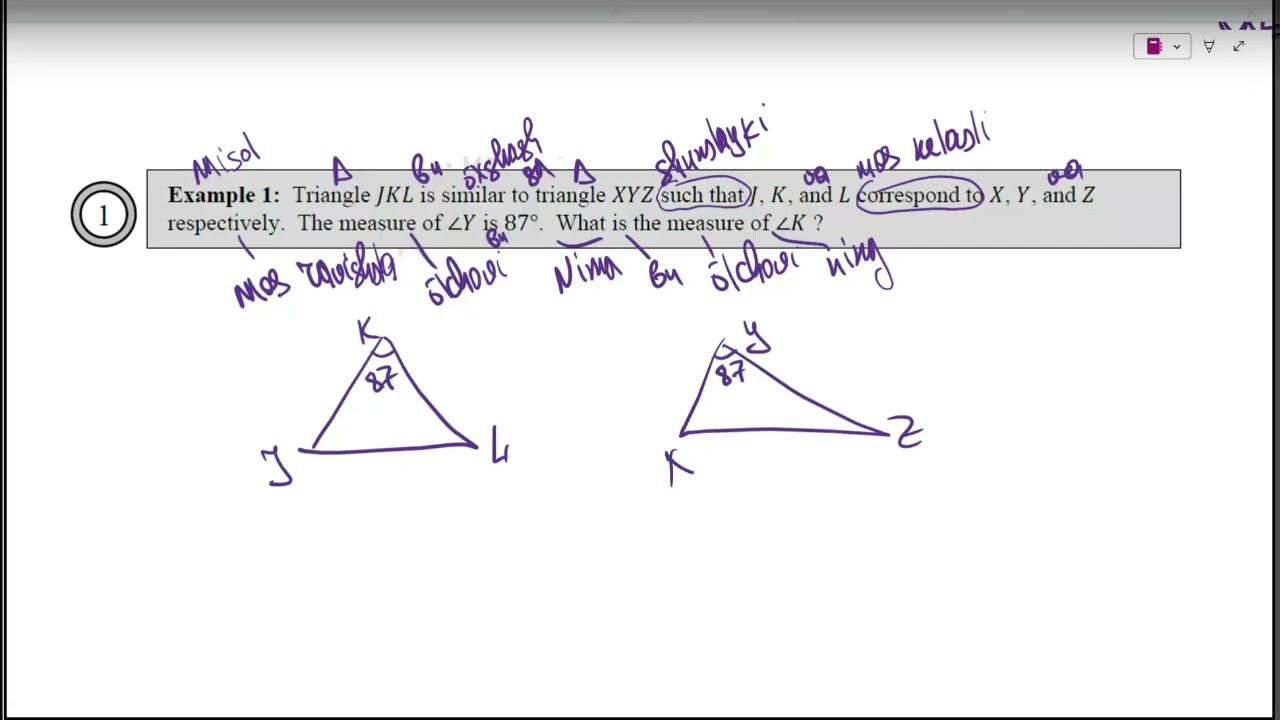 Misol Δ bu ôxshash ga Δ shundayki va mos keladi va
1
Example 1: Triangle JKL is similar to triangle XYZ such that J, K, and L correspond to X, Y, and Z
respectively. The measure of ∠Y is 87°. What is the measure of ∠K ?
mos ravishda ôlchovi bu Nima bu ôlchovi ning
K Y
87 87
J L X Z